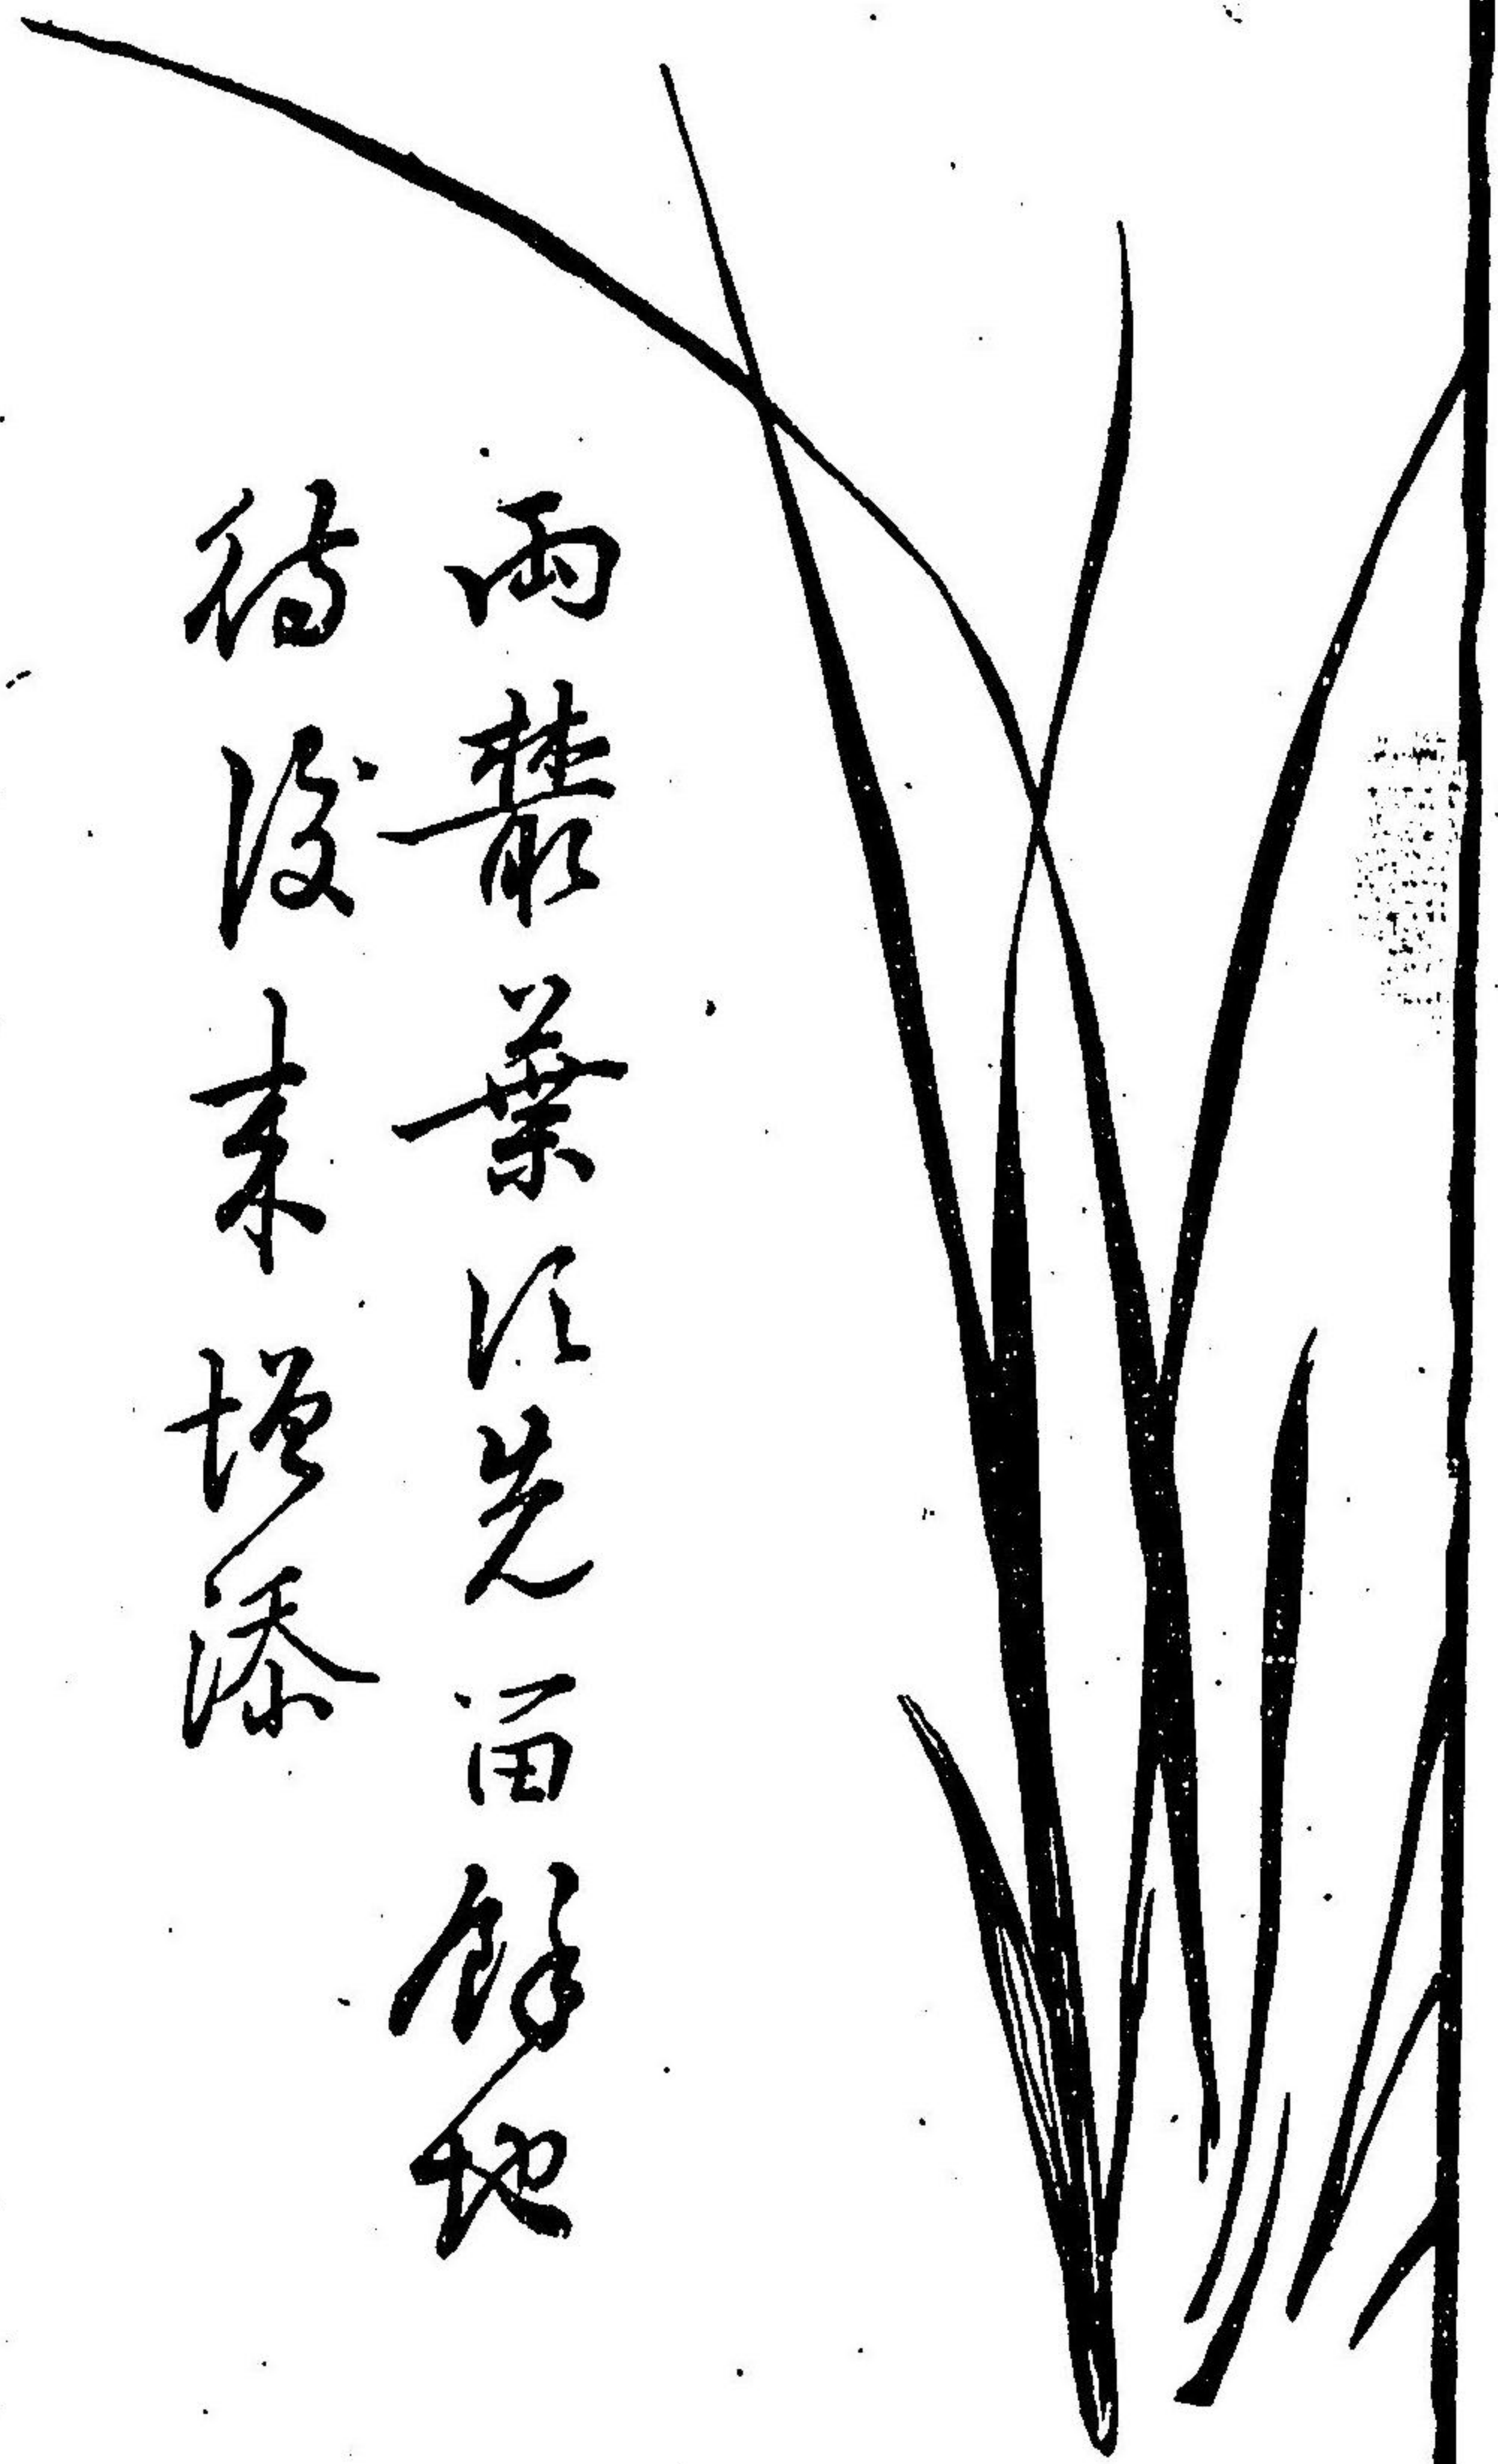 兩叢葉須先留餘地
待後來增添